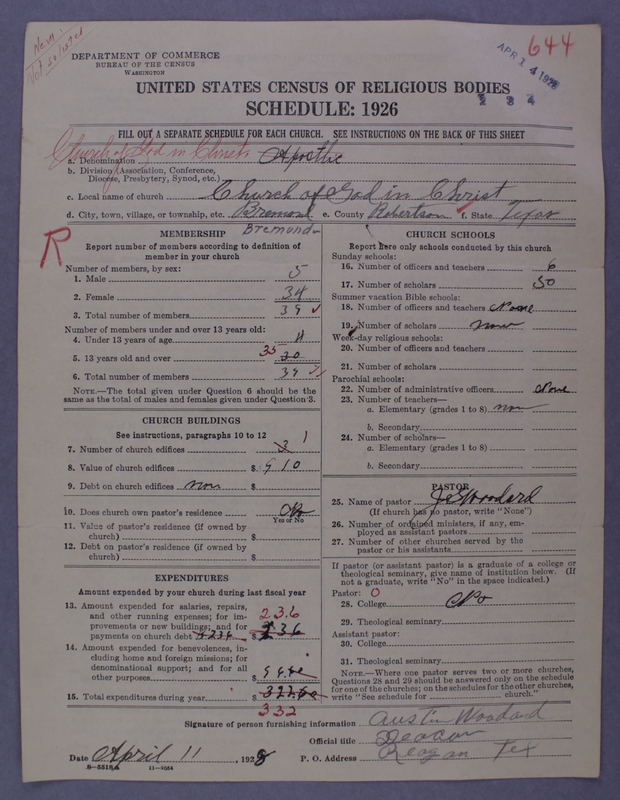 New.
Not so listed
644
APR 14 1928
2 3 4
DEPARTMENT OF COMMERCE
BUREAU OF THE CENSUS
WASHINGTON
UNITED STATES CENSUS OF RELIGIOUS BODIES
SCHEDULE: 1926
FILL OUT A SEPARATE SCHEDULE FOR EACH CHURCH. SEE INSTRUCTIONS ON THE BACK OF THIS SHEET
Church of God in Christ
a. Denomination Apostlic
b. Division (Association, Conference,
Diocese, Presbytery, Synod, etc.)
c. Local name of church Church of God in Christ
d. City, town, village, or township, etc. Bremond e. County Robertson f. State Texas
Bremond
R
MEMBERSHIP
Report number of members according to definition of
member in your church
Number of members, by sex:
1. Male 5
2. Female 34
3. Total number of members 39
Number of members under and over 13 years old:
4. Under 13 years of age 4
5. 13 years old and over 35 30
6. Total number of members 39
NOTE.—The total given under Question 6 should be the
same as the total of males and females given under Question 3.
CHURCH BUILDINGS
See instructions, paragraphs 10 to 12
7. Number of church edifices 3 1
8. Value of church edifices $ 910
9. Debt on church edifices non $
10. Does church own pastor's residence No
Yes or No
11. Value of pastor's residence (if owned by
church) $
12. Debt on pastor's residence (if owned by
church) $
EXPENDITURES
Amount expended by your church during last fiscal year
13. Amount expended for salaries, repairs,
and other running expenses; for im-
provements or new buildings; and for
payments on church debt $236 $ 236
236
14. Amount expended for benevolences, in-
cluding home and foreign missions; for
denominational support; and for all
other purposes $
15. Total expenditures during year $
332
CHURCH SCHOOLS
Report here only schools conducted by this church
Sunday schools:
16. Number of officers and teachers 6
17. Number of scholars 50
Summer vacation Bible schools:
18. Number of officers and teachers None
19. Number of scholars none
Week-day religious schools:
20. Number of officers and teachers
21. Number of scholars
Parochial schools:
22. Number of administrative officers None
23. Number of teachers—
a. Elementary (grades 1 to 8) non
b. Secondary
24. Number of scholars—
a. Elementary (grades 1 to 8)
b. Secondary
PASTOR
25. Name of pastor Woodard
(If church has no pastor, write "None")
26. Number of ordained ministers, if any, em-
ployed as assistant pastors
27. Number of other churches served by the
pastor or his assistants
If pastor (or assistant pastor) is a graduate of a college or
theological seminary, give name of institution below. (If
not a graduate, write "No" in the space indicated.)
Pastor: 0
28. College No
29. Theological seminary
Assistant pastor:
30. College
31. Theological seminary
NOTE.—Where one pastor serves two or more churches,
Questions 28 and 29 should be answered only on the schedule
for one of the churches; on the schedules for the other churches,
write "See schedule for church."
Signature of person furnishing information Austin Woodard
Official title Deacon
Date April 11, 1928 P. O. Address Reagan Tex
8-5518a 11-9054